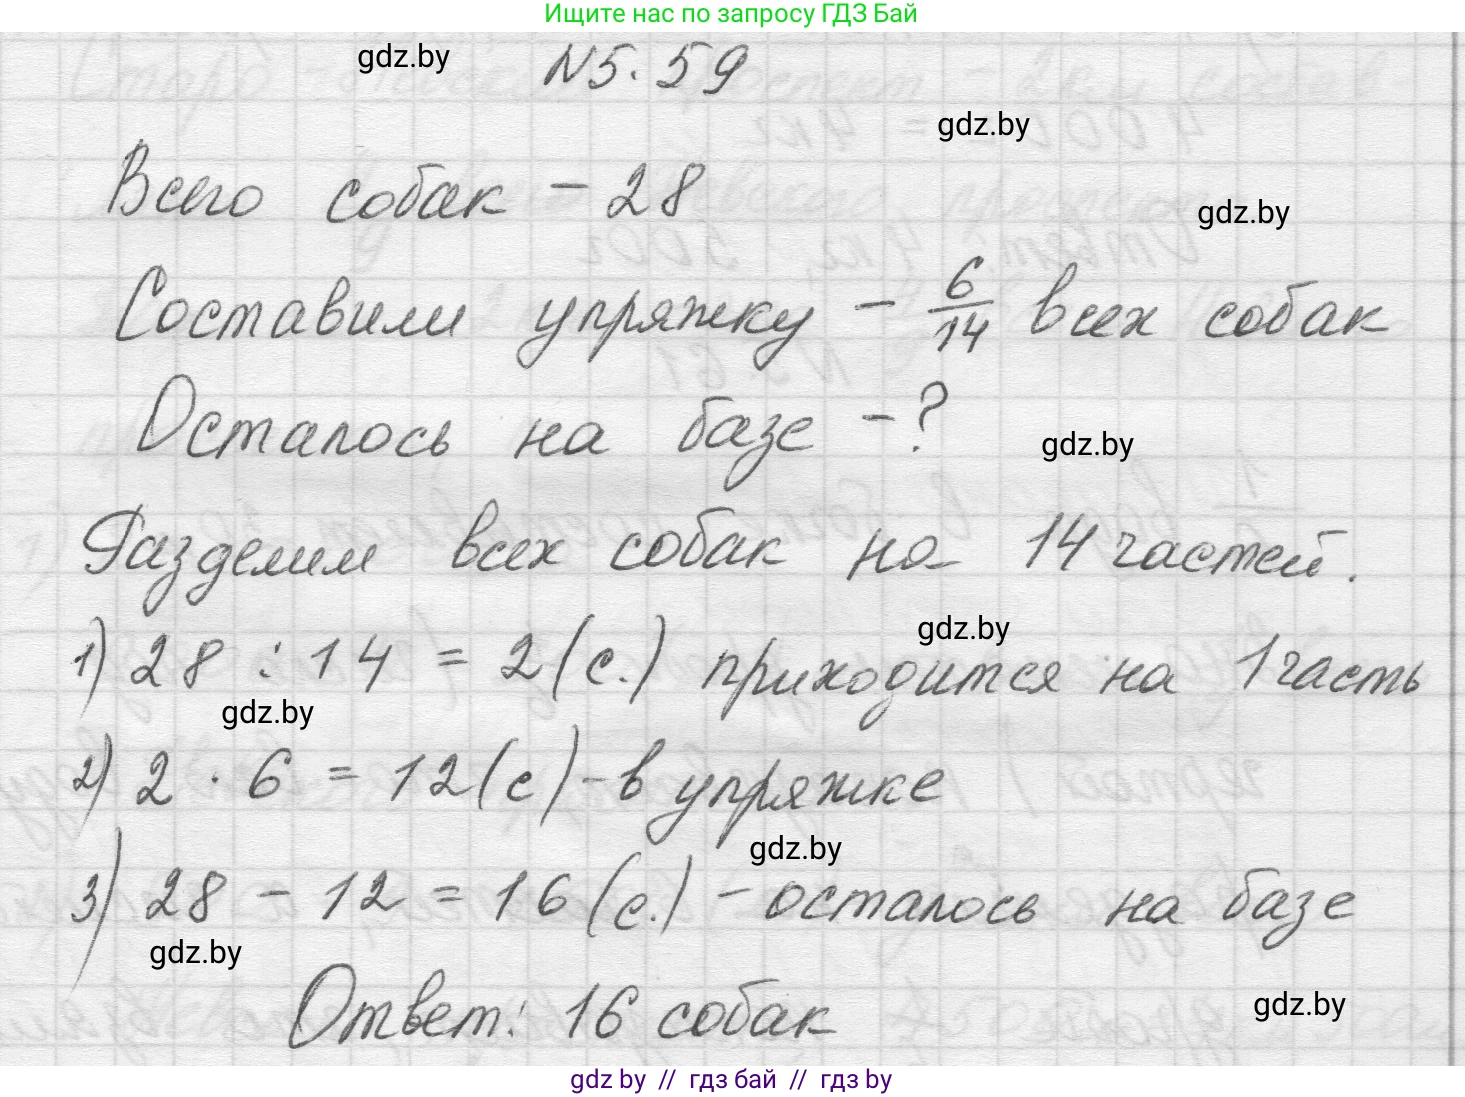 Ищите нас по запросу ГДЗ Бай
gdz.by
N5.59
gdz.by
Всего собак - 28
gdz.by
Составили упряжку - 6/14 всех собак
Осталось на базе - ?
gdz.by
Разделим всех собак на 14 частей.
gdz.by
1) 28 : 14 = 2 (с.) приходится на 1 часть
gdz.by
2) 2 · 6 = 12 (с) - в упряжке
gdz.by
3) 28 - 12 = 16 (с.) - осталось на базе
gdz.by
Ответ: 16 собак
gdz.by
gdz by // гдз бай // гдз by